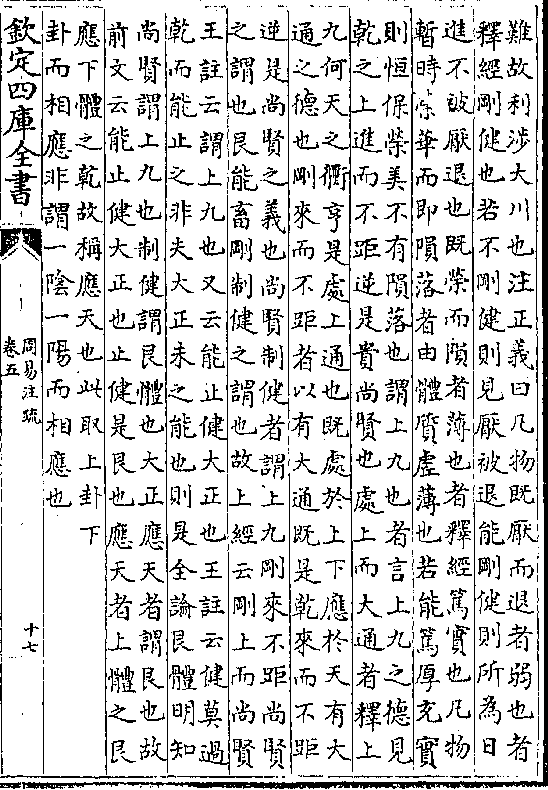 難故利涉大川也注正義曰凡物既厭而退者弱也者
釋經剛健也若不剛健則見厭被退能剛健則所為日
進不被厭退也既榮而隕者薄也者釋經篤實也凡物
暫時榮華而即隕落者由體質虛薄也若能篤厚充實
則恒保榮美不有隕落也謂上九也者言上九之德見
乾之上進而不距逆是貴尚賢也處上而大通者釋上
九何天之衢亨是處上通也既處於上下應於天有大
通之德也剛來而不距者以有大通既是乾來而不距
逆是尚賢之義也尚賢制健者謂上九剛來不距尚賢
之謂也艮能畜剛制健之謂也故上經云剛上而尚賢
王註云謂上九也又云能止健大正也王註云健莫過
乾而能止之非夫大正未之能也則是全論艮體明知
尚賢謂上九也制健謂艮體也大正應天者謂艮也故
前文云能止健大正也止健是艮也應天者上體之艮
應下體之乾故稱應天也此取上卦下
卦而相應非謂一陰一陽而相應也
欽定四庫全書
周易注疏
卷五
十七